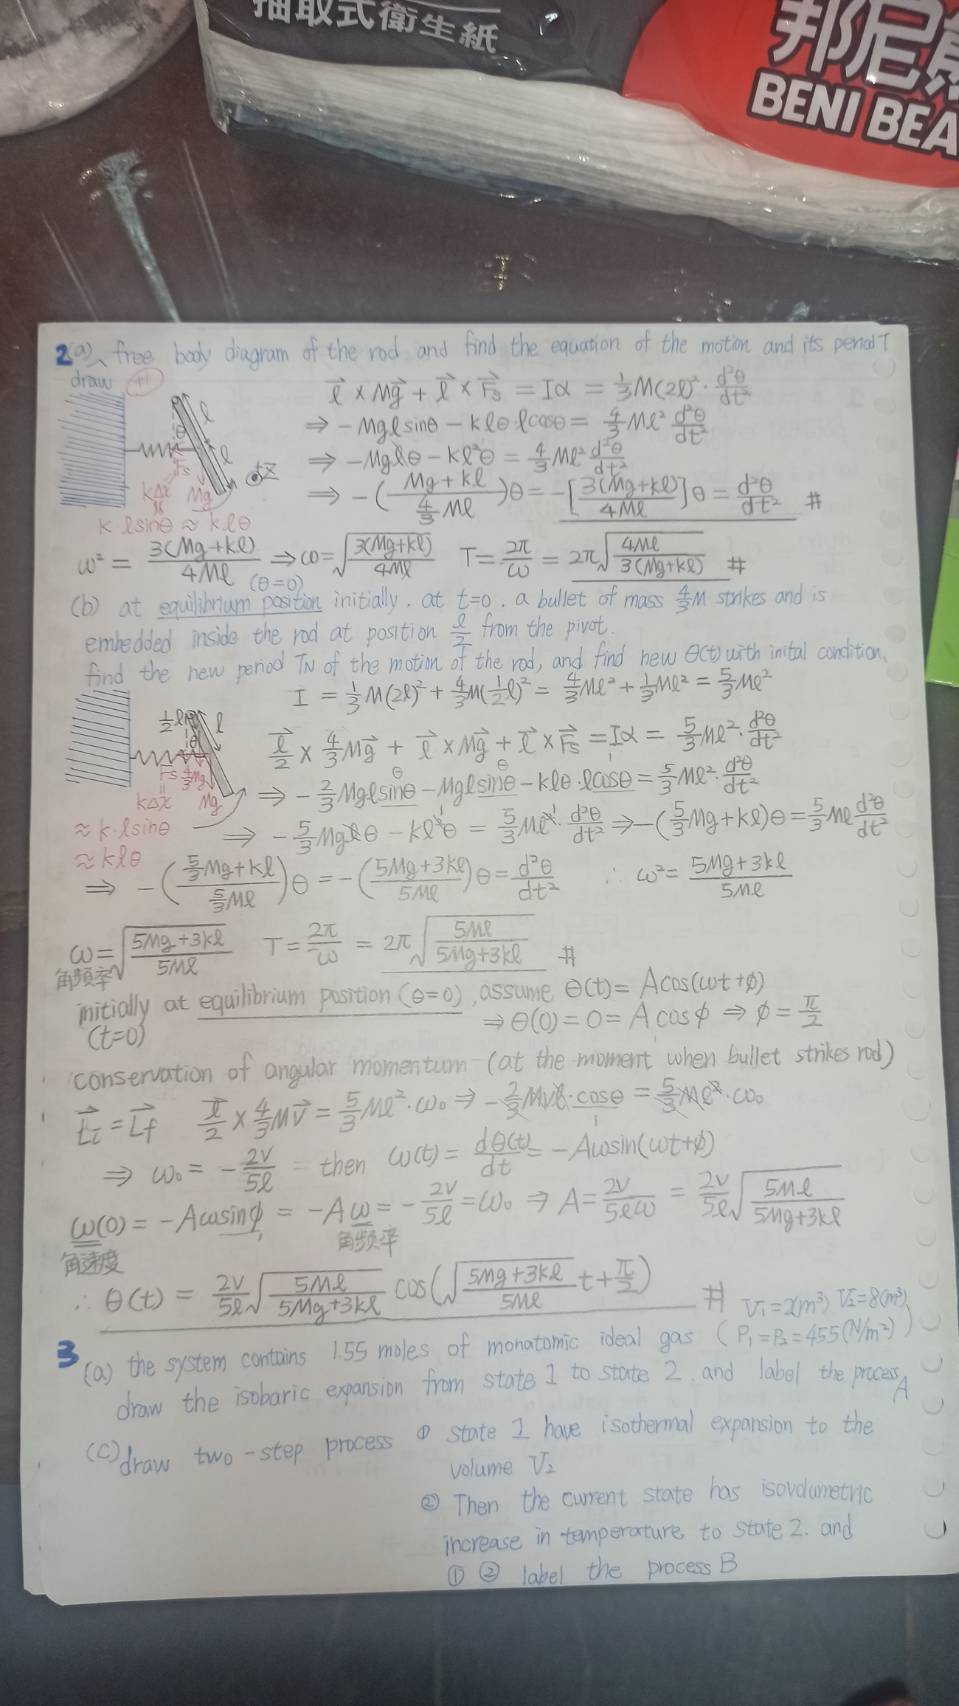 抽取式衛生紙
邦尼熊
BENI BEA
2(a) draw free body diagram of the rod. and find the equation of the motion and its period T
+1
l⃗ × Mg⃗ + l⃗ × F⃗s = Iα = 1/3 M(2l)² · d²θ/dt²
⇒ -Mglsinθ - klθ·lcosθ = 4/3 Ml² d²θ/dt²
⇒ -Mglθ - kl²θ = 4/3 Ml² d²θ/dt²
⇒ -((Mg+kl)/(4/3 Ml))θ = -[3(Mg+kl)/4Ml]θ = d²θ/dt² #
θ l l +z
Fs Mg
kΔx
k lsinθ ≈ klθ
ω² = 3(Mg+kl)/4Ml ⇒ ω = √(3(Mg+kl)/4Ml) T = 2π/ω = 2π√(4Ml/3(Mg+kl)) #
(θ=0)
(b) at equilibrium position initially. at t=0. a bullet of mass 4/3 M strikes and is
embedded inside the rod at position l/2 from the pivot.
find the new period TN of the motion of the rod, and find new θ(t) with inital condition.
I = 1/3 M(2l)² + 4/3 M(1/2 l)² = 4/3 Ml² + 1/3 Ml² = 5/3 Ml²
1/2 l θ l
Fs 4/3 Mg
kΔx Mg
≈ k·lsinθ
≈ klθ
l⃗/2 × 4/3 Mg⃗ + l⃗ × Mg⃗ + l⃗ × F⃗s = Iα = 5/3 Ml² · d²θ/dt²
⇒ -2/3 Mglsinθ - Mglsinθ - klθ·lcosθ = 5/3 Ml² · d²θ/dt²
⇒ -5/3 Mglθ - kl²θ = 5/3 Ml² · d²θ/dt² ⇒ -(5/3 Mg+kl)θ = 5/3 Ml d²θ/dt²
⇒ -((5/3 Mg+kl)/(5/3 Ml))θ = -((5Mg+3kl)/5Ml)θ = d²θ/dt² ∴ ω² = (5Mg+3kl)/5Ml
ω = √((5Mg+3kl)/5Ml) T = 2π/ω = 2π√(5Ml/(5Mg+3kl)) #
角頻率
initially at equilibrium position (θ=0), assume θ(t) = Acos(ωt+ϕ)
(t=0) ⇒ θ(0) = 0 = A cosϕ ⇒ ϕ = π/2
conservation of angular momentum (at the moment when bullet strikes rod)
L⃗i = L⃗f l⃗/2 × 4/3 Mv⃗ = 5/3 Ml²·ω₀ ⇒ -2/3 Mvl·cosθ = 5/3 Ml²·ω₀
⇒ ω₀ = -2v/5l then ω(t) = dθ(t)/dt = -Aωsin(ωt+ϕ)
ω(0) = -Aωsinϕ = -Aω = -2v/5l = ω₀ ⇒ A = 2v/5lω = 2v/5l √(5Ml/(5Mg+3kl))
角速度 角頻率
∴ θ(t) = 2v/5l √(5Ml/(5Mg+3kl)) cos(√((5Mg+3kl)/5Ml) t + π/2) #
3 (a) the system contains 1.55 moles of monatomic ideal gas (V₁=2(m³) V₂=8(m³) P₁=P₂=455(N/m²))
draw the isobaric expansion from state 1 to state 2. and label the process A
(c) draw two-step process ① state 1 have isothermal expansion to the
volume V₂
② Then the current state has isovolumetric
increase in temperature to state 2. and
① ② label the process B